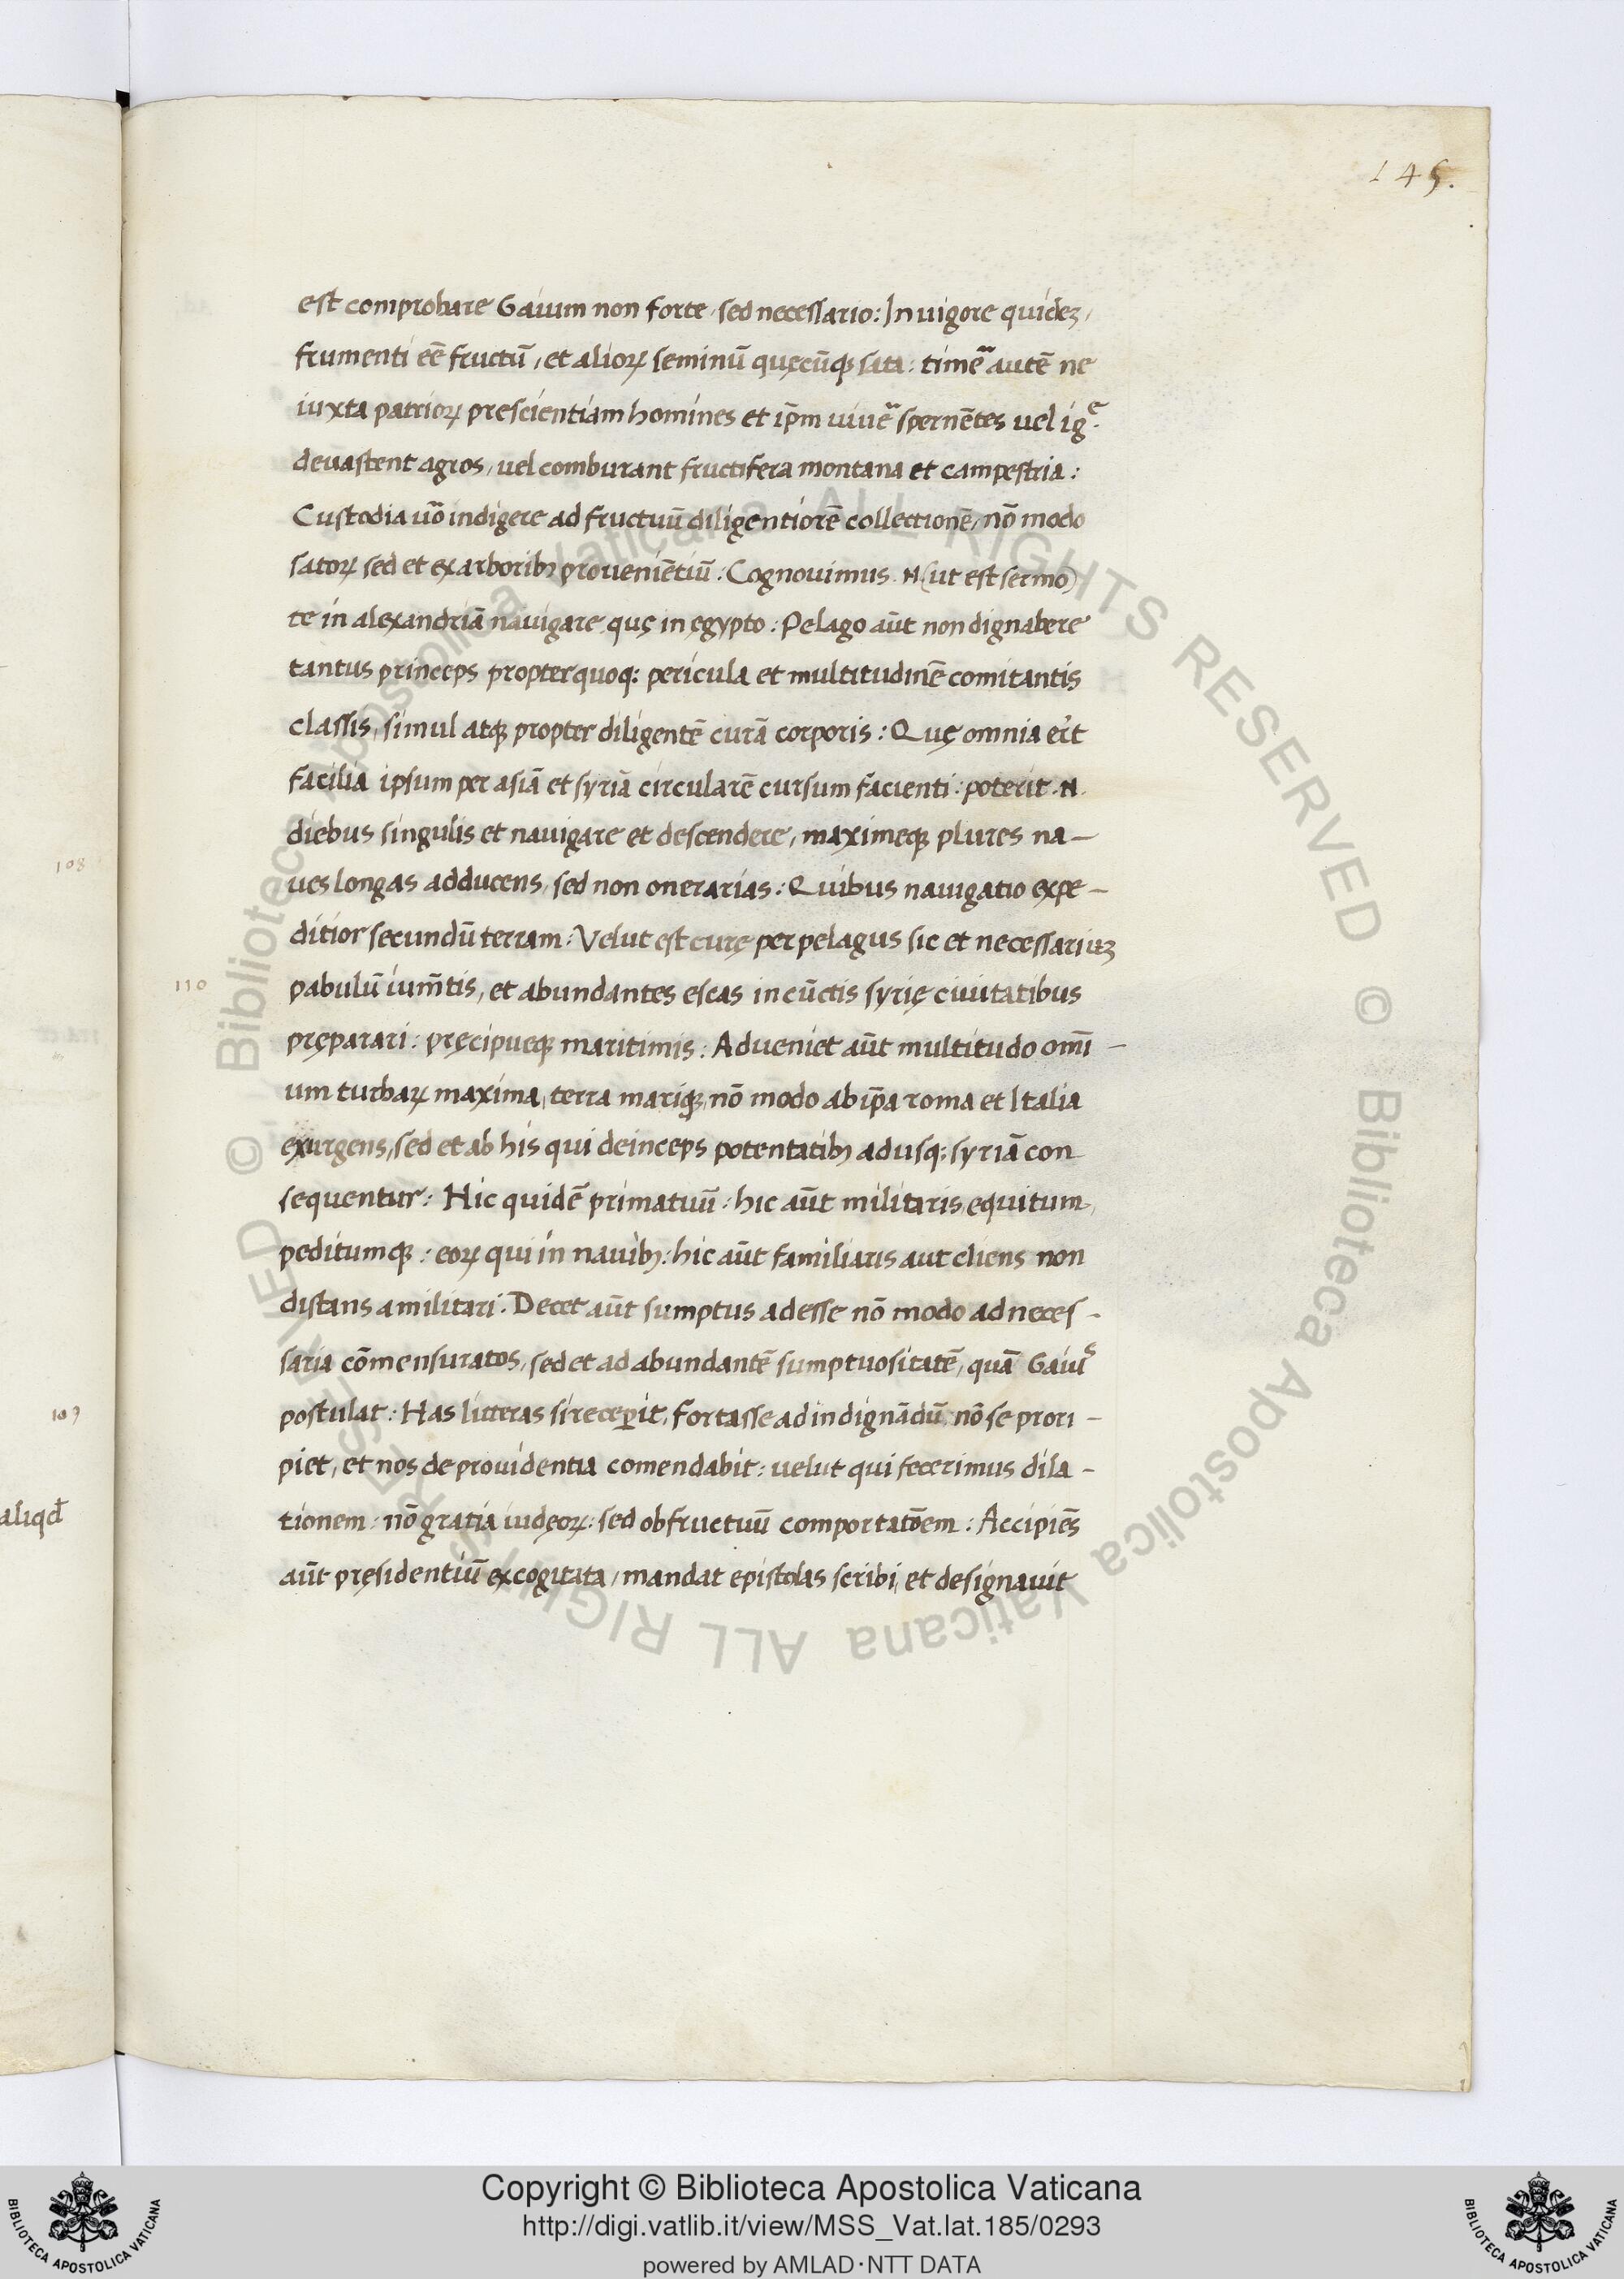 145.
est comprobare Gaium non forte, sed necessario: In uigore quideꝫ,
frumenti eē fructū, et alioꝝ seminū quęcūqꝫ sata: timē autē ne
iuxta patrioꝝ prescientiam homines et ip̄m uiuē spernētes uel ig̃.
deuastent agros, uel comburant fructifera montana et campestria:
Custodia uō indigere ad fructuū diligentiorē collectionē, nō modo
satoꝝ sed et ex arboribꝫ proueniētiū: Cognouimus .N. (ut est sermo)
te in alexandriā nauigare, quę in ęgypto: Pelago aūt non dignabere
tantus princeps propter quoqꝫ pericula et multitudinē comitantis
classis, simul atqꝫ propter diligentē curā corporis: Quę omnia er̄t
facilia ipsum per asiā et syriā circularē cursum facienti: poterit .N.
diebus singulis et nauigare et descendere, maximeqꝫ plures na-
108
ues longas adducens, sed non onerarias: Quibus nauigatio expe-
ditior secundū terram: Velut est curę per pelagus sic et necessariuꝫ
110
pabulū ium̄tis, et abundantes escas in cūctis syrię ciuitatibus
pręparari: pręcipueqꝫ maritimis: Adueniet aūt multitudo omī-
um turbaꝝ maxima, terra mariqꝫ, nō modo ab ip̄a roma et Italia
exurgens, sed et ab his qui deinceps potentatibꝫ adusqꝫ syriā con
sequentur: Hic quidē primatuū: hic aūt militaris, equitum,
peditumqꝫ: eoꝝ qui in nauibꝫ: hic aūt familiaris aut cliens non
distans a militari. Decet aūt sumptus adesse nō modo ad neces-
saria cōmensuratos, sed et ad abundantē sumptuositatē, quā Gaiuˢ
109
postulat: Has litteras si receꝑit, fortasse ad indignādū nō se prori-
piet, et nos de prouidentia comendabit: uelut qui fecerimus dila-
aliqd̄
tionem: nō gratia iudęoꝝ: sed ob fructuū comportatōem: Accipiēs
aūt pręsidentiū excogitata, mandat epistolas scribi, et designauit
© Biblioteca Apostolica Vaticana ALL RIGHTS RESERVED © Biblioteca Apostolica Vaticana ALL RIGHTS RESERVED
Copyright © Biblioteca Apostolica Vaticana
http://digi.vatlib.it/view/MSS_Vat.lat.185/0293
powered by AMLAD·NTT DATA
BIBLIOTECA APOSTOLICA VATICANA
BIBLIOTECA APOSTOLICA VATICANA